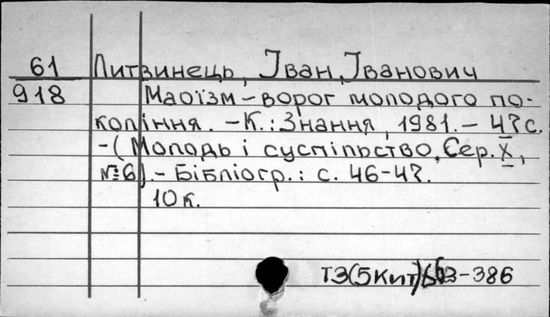 61 Литвинець, Іван Іванович
918 Маоїзм – ворог молодого по-
коління. – К.: Знання, 1981. – 47с.
– (Молодь і суспільство, Сер. X,
№6). – Бібліогр.: с. 46-47.
10к.
Т3(5Кит)6